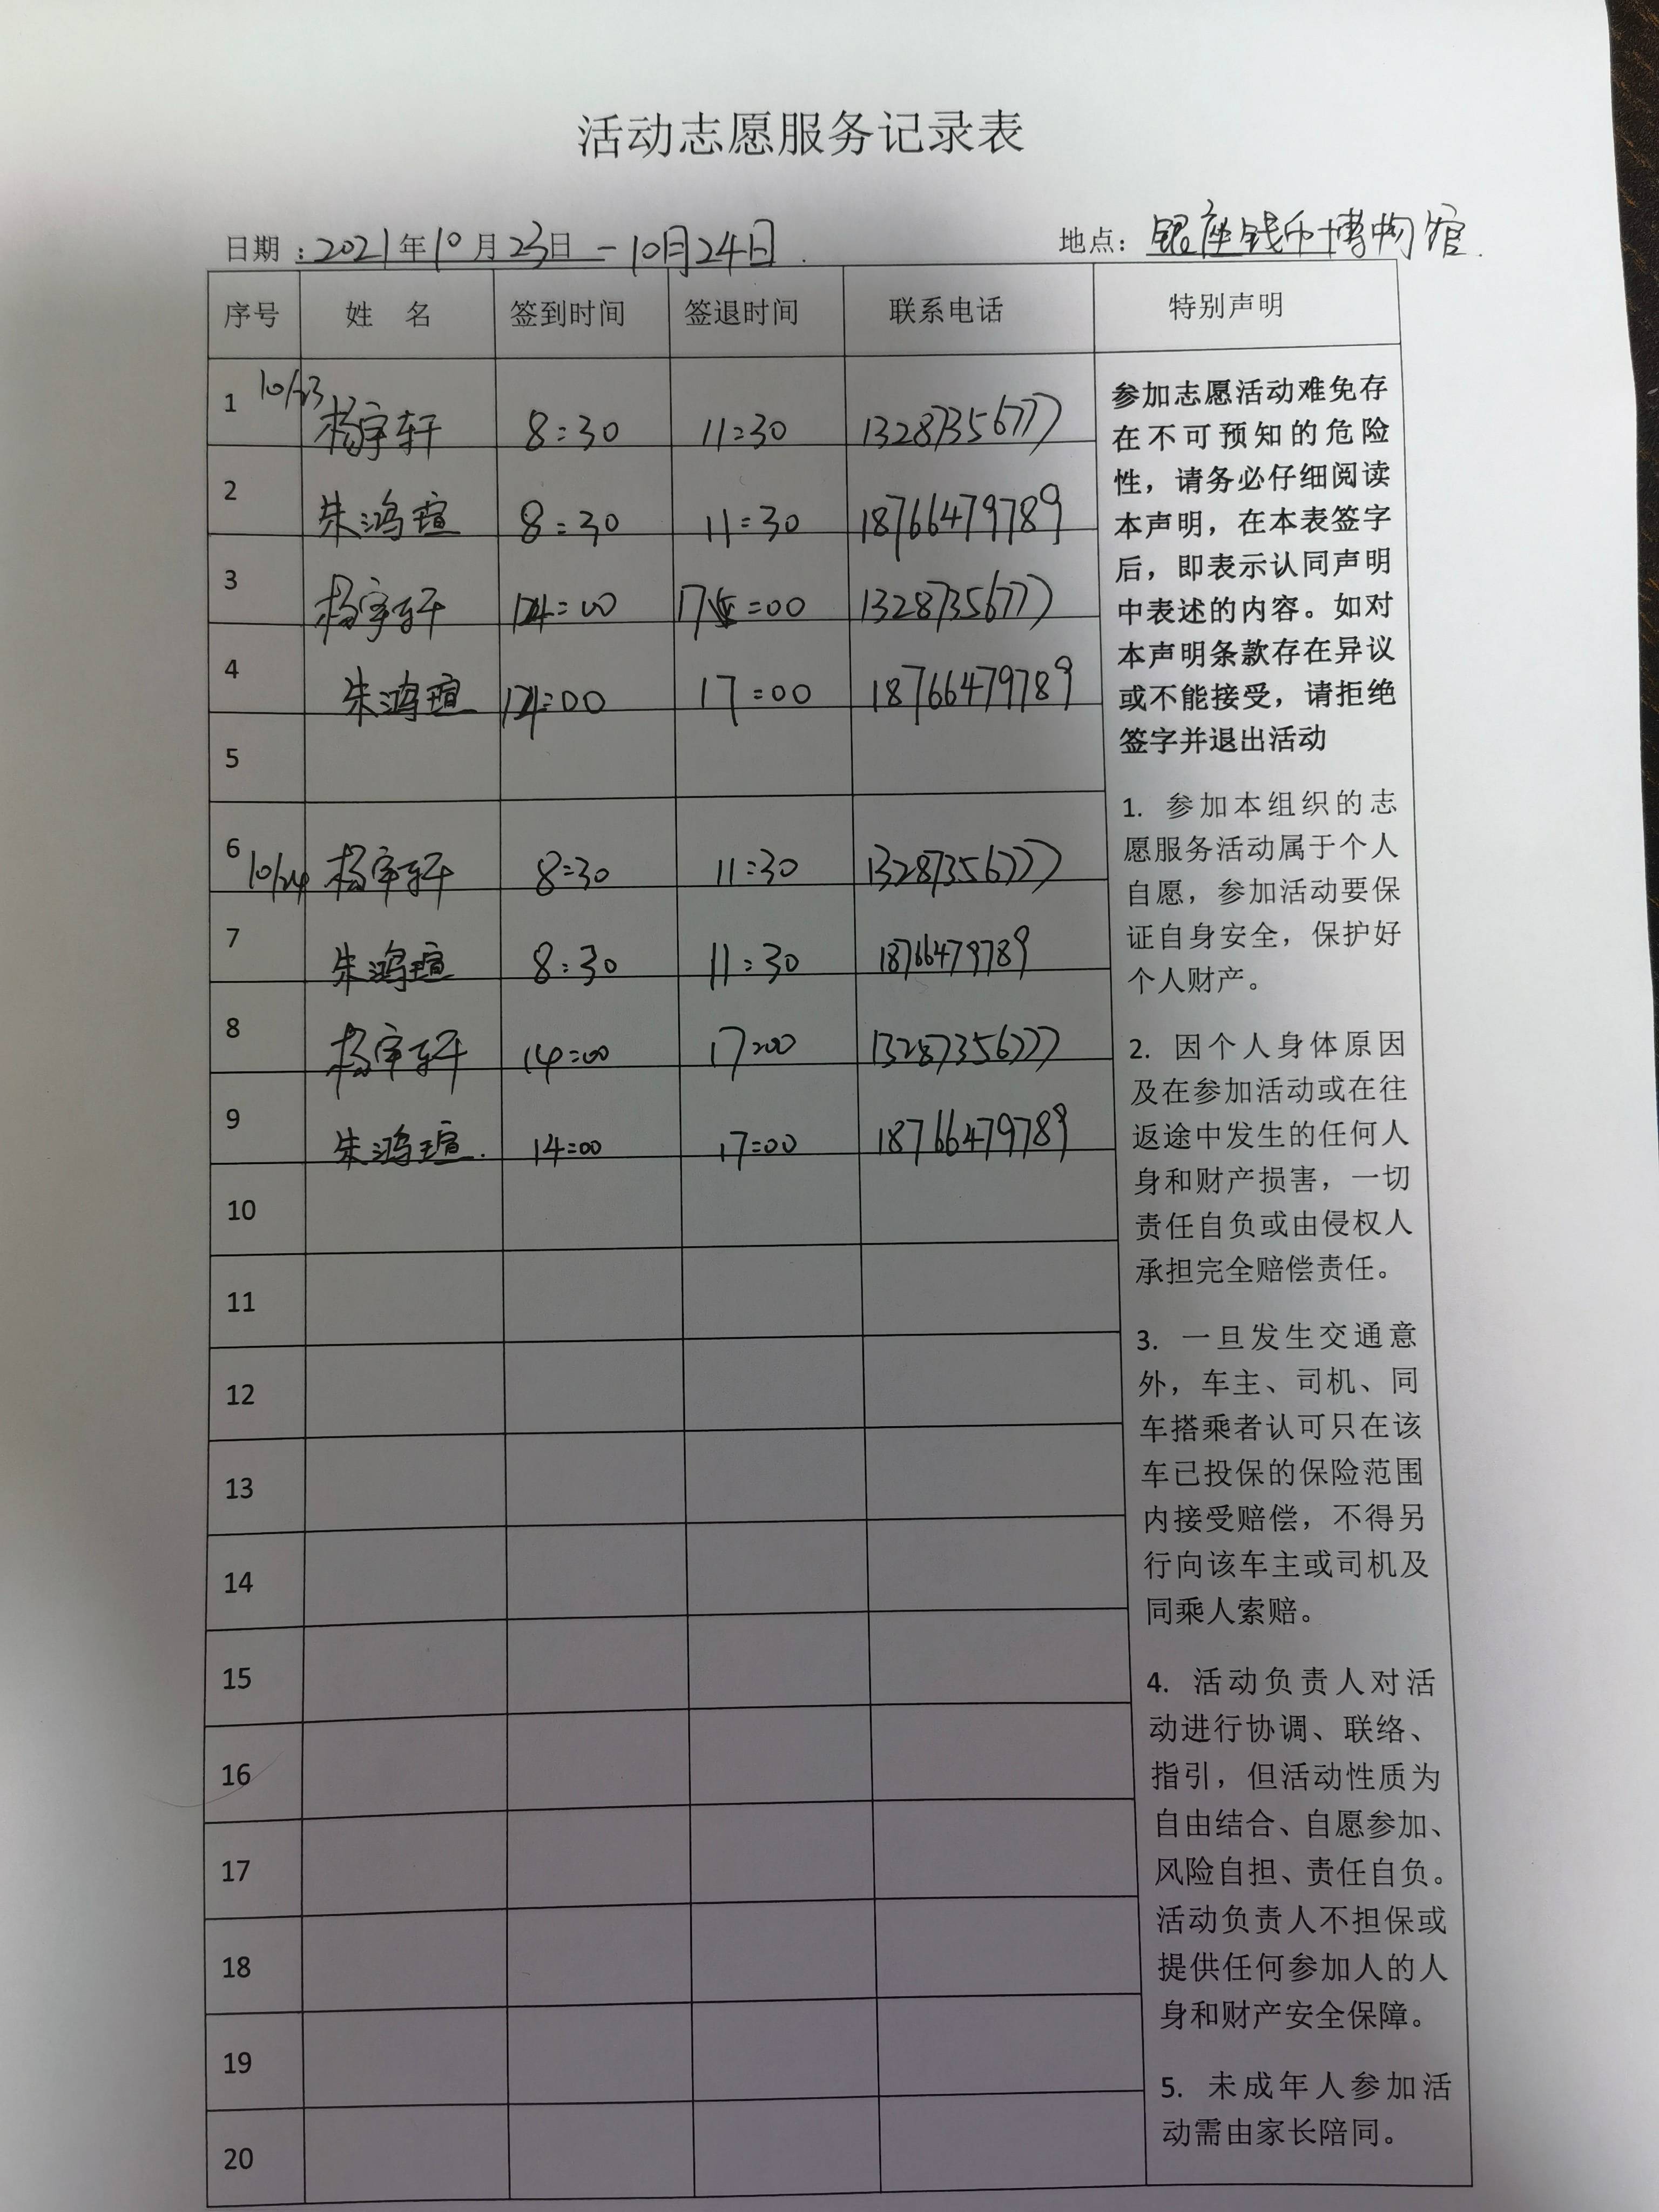 活动志愿服务记录表
日期:2021年10月23日-10月24日. 地点:银座钱币博物馆.
序号 姓 名 签到时间 签退时间 联系电话 特别声明
1 10/23 杨宇轩 8:30 11:30 13287356777
2 朱鸿瑄 8:30 11:30 18766479789
3 杨宇轩 14:00 17:00 13287356777
4 朱鸿瑄 14:00 17:00 18766479789
5
6 10/24 杨宇轩 8:30 11:30 13287356777
7 朱鸿瑄 8:30 11:30 18766479789
8 杨宇轩 14:00 17:00 13287356777
9 朱鸿瑄. 14:00 17:00 18766479789
10
11
12
13
14
15
16
17
18
19
20
参加志愿活动难免存
在不可预知的危险
性，请务必仔细阅读
本声明，在本表签字
后，即表示认同声明
中表述的内容。如对
本声明条款存在异议
或不能接受，请拒绝
签字并退出活动
1. 参加本组织的志
愿服务活动属于个人
自愿，参加活动要保
证自身安全，保护好
个人财产。
2. 因个人身体原因
及在参加活动或在往
返途中发生的任何人
身和财产损害，一切
责任自负或由侵权人
承担完全赔偿责任。
3. 一旦发生交通意
外，车主、司机、同
车搭乘者认可只在该
车已投保的保险范围
内接受赔偿，不得另
行向该车主或司机及
同乘人索赔。
4. 活动负责人对活
动进行协调、联络、
指引，但活动性质为
自由结合、自愿参加、
风险自担、责任自负。
活动负责人不担保或
提供任何参加人的人
身和财产安全保障。
5. 未成年人参加活
动需由家长陪同。